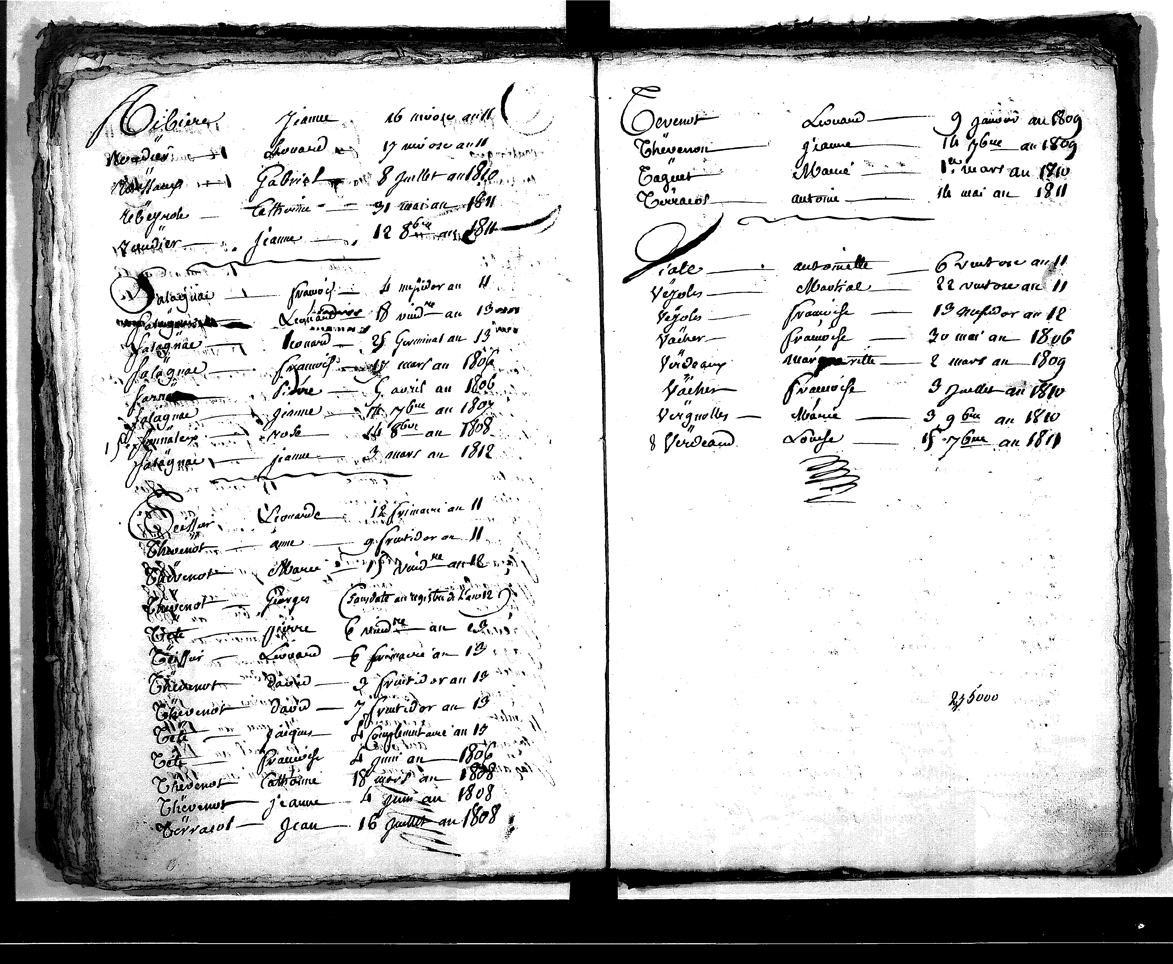 Ribiere Jeanne 16 nivose an 11
Léonard 17 nivose an 11
Gabriel 8 Juillet an 1810
Rebeyrole Catherine 31 mai an 1811
Jeanne 12 8bre an 1811
Salagnac françois 4 messidor an 11
Léonard 18 vend.re an 13
Salagnac Léonard 25 Germinal an 13
Salagnac françois 17 mars an 1806
pierre 5 avril an 1806
Salagnac Jeanne 14 7bre an 1807
rose 14 8bre an 1808
Salagnac Jeanne 3 mars an 1812
Teissier Léonarde 12 frimaire an 11
Thevenot anne 9 fructidor an 11
Thevenot Marie 15 vend.re an 12
Thevenot Georges (sans date au registre de l'an 12)
Tête pierre 6 vend.re an 13
Teissier Léonard 6 frimaire an 13
Thevenot david 3 fructidor an 13
Thevenot david 7 fructidor an 13
Tête Jacques 4 Complementaire an 13
Tête françoise 4 Juin an 1806
Thevenot Catherine 18 mars an 1808
Thevenot Jeanne 4 Juin an 1808
Terrasol Jean 16 Juillet an 1808
Tevenot Léonard 9 Janvier an 1809
Thevenon Jeanne 14 7bre an 1809
Taguet Marie 1er mars an 1810
Terrasol antoine 14 mai an 1811
antoinette 6 ventose an 11
Veyoles Martial 22 ventose an 11
Veyoles françoise 13 messidor an 12
Vacher françoise 30 mai an 1806
Verdeaux Marguerite 2 mars an 1809
Vacher françoise 3 Juillet an 1810
Vergnolles Marie 3 9bre an 1810
8 Verdeaud Louise 15 7bre an 1811